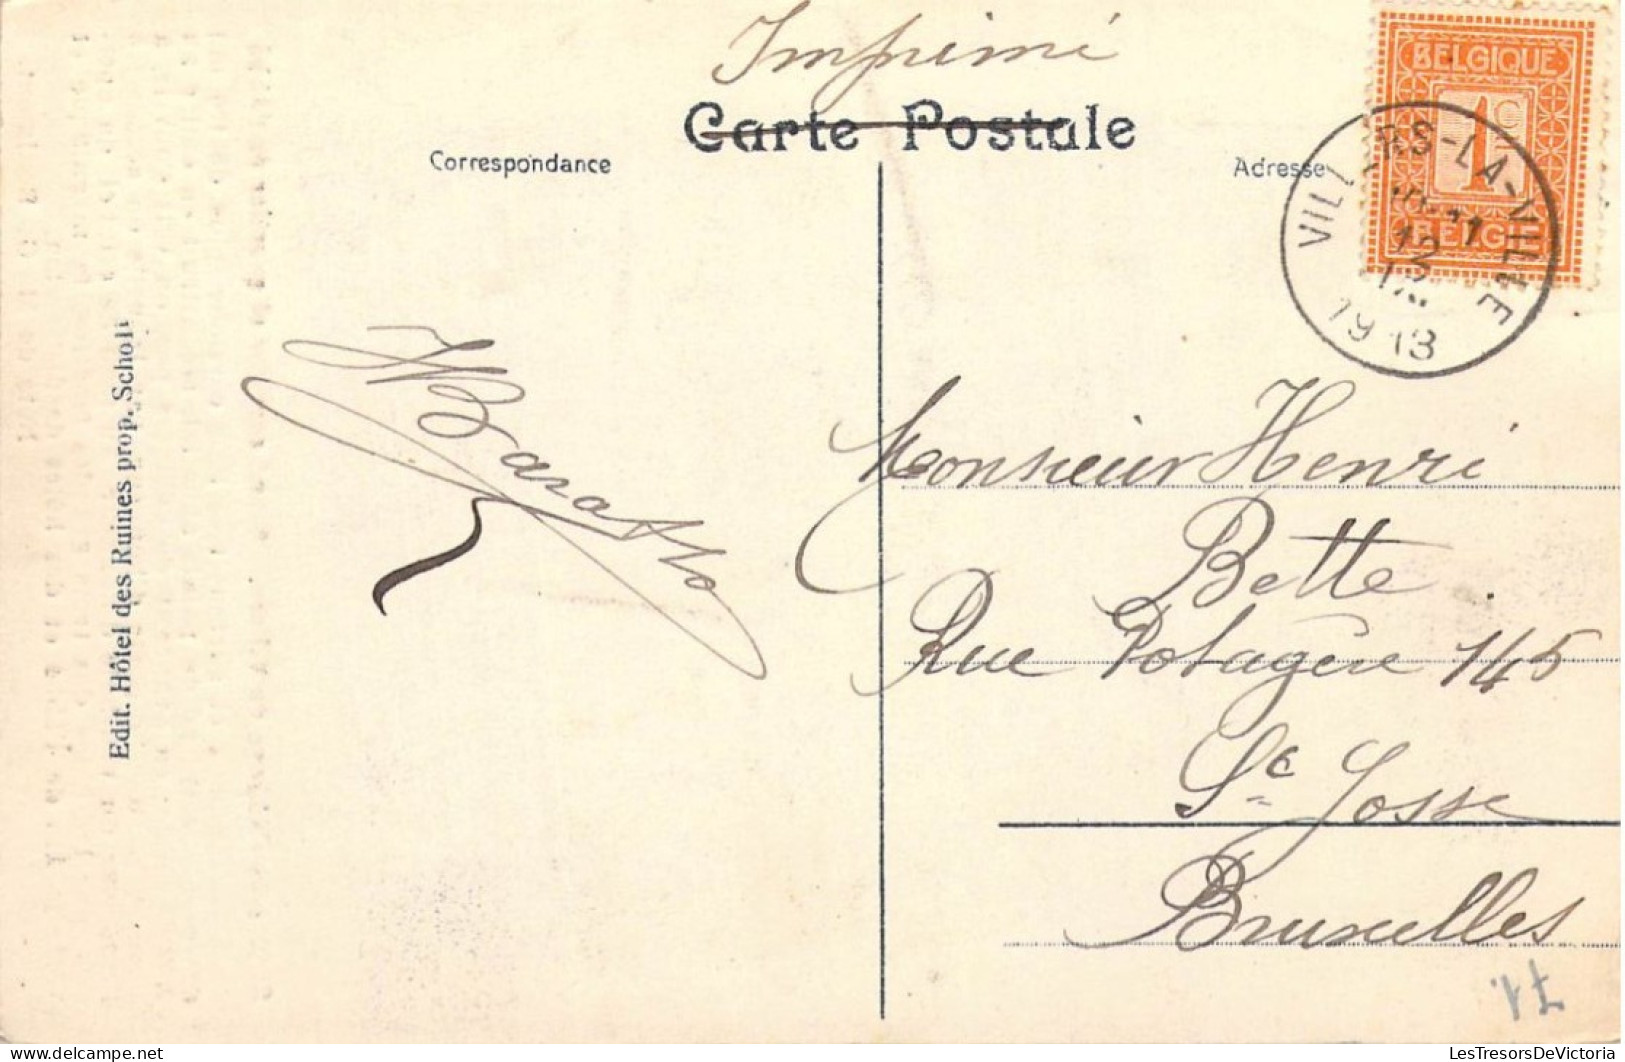 Imprimé
Carte Postale
Correspondance
Adresse
BELGIQUE
1c
BELGIË
VILLERS-LA-VILLE
12
1913
Edit. Hôtel des Ruines prop. Scholl
Monsieur Henri
Bette
Rue Potagère 145
St Josse
Bruxelles
LesTresorsDeVictoria.com